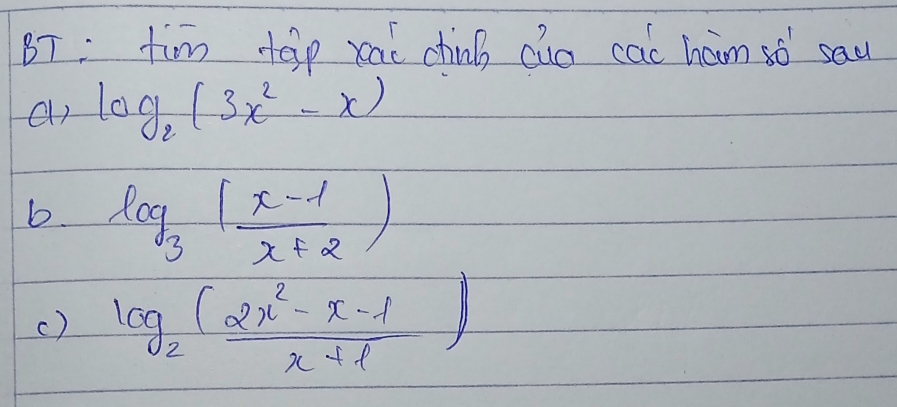 BT: tìm tập xác định của các hàm số sau
a, log₂ (3x² - x)
b. log₃ ((x-1)/(x+2))
c) log₂ ((2x² - x - 1)/(x+1))